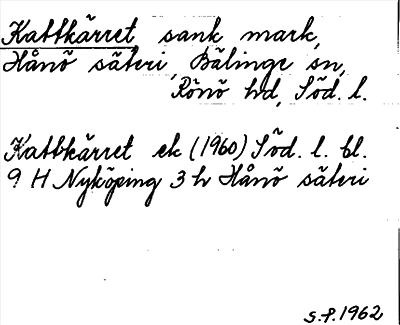 Kattkärret sank mark,
Hånö säteri, Bälinge sn,
Rönö hd, Söd. l.
Kattkärret ek (1960) Söd. l. bl.
9 H Nyköping 3 h Hånö säteri
S.P. 1962